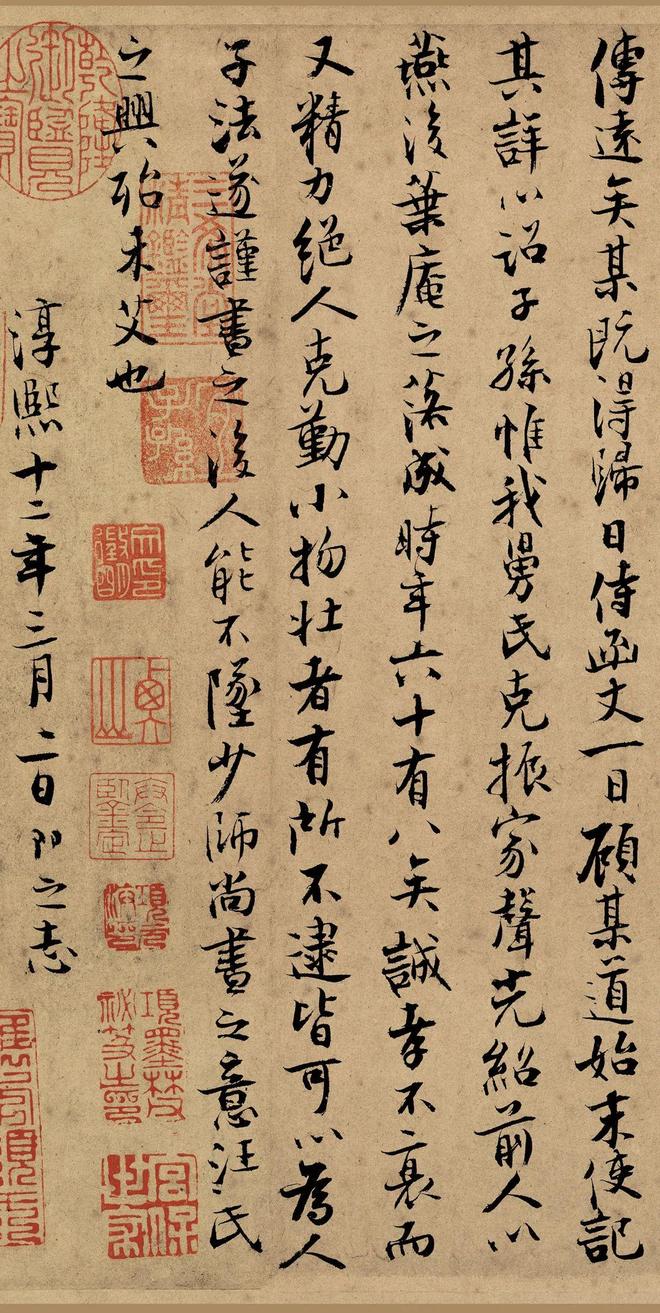 傳遠矣某既得歸日侍函丈一日顧某道始末使記
其詳以詔子孫惟我舅氏克振家聲光紹前人以
燕後葉庵之落成時年六十有八矣誠孝不衰而
又精力絕人克勤小物壯者有所不逮皆可以為人
子法遂謹書之後人能不墜少師尚書之意汪氏
之興殆未艾也
淳熙十二年三月二日即之志
乾隆御覽之寶
三希堂精鑑璽
宜子孫
宮保世家